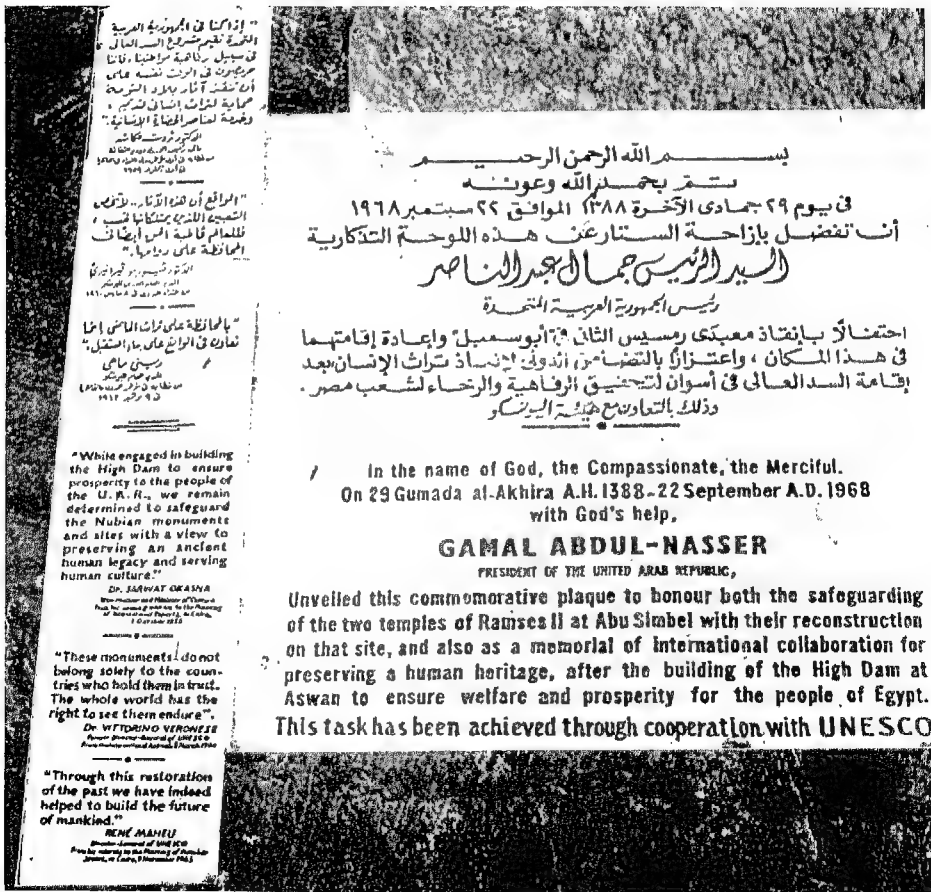 " إذا كنا في الجمهورية العربية
المتحدة نقيم مشروع السد العالي
في سبيل رفاهية مواطنينا، فإننا
حريصون في الوقت نفسه على
أن ننقذ آثار بلاد النوبة
حماية لتراث إنساني قديم ،
وخدمة لعناصر الحضارة الإنسانية."
الدكتور ثروت عكاشة
"الواقع أن هذه الآثار.. لا تخص
الشعبين اللذين يمتلكانها فحسب ،
فللعالم قاطبة الحق أيضا في
المحافظة على دوامها."
الدكتور فيتورينو فيرونيزي
"بالمحافظة على تراث الماضي إنما
نعاون في الواقع على بناء المستقبل"
رينيه ماهيو
"While engaged in building
the High Dam to ensure
prosperity to the people of
the U.A.R., we remain
determined to safeguard
the Nubian monuments
and sites with a view to
preserving an ancient
human legacy and serving
human culture."
Dr. SARWAT OKASHA
"These monuments do not
belong solely to the coun-
tries who hold them in trust.
The whole world has the
right to see them endure".
Dr. VITTORINO VERONESE
"Through this restoration
of the past we have indeed
helped to build the future
of mankind."
RENÉ MAHEU
Director-General of UNESCO
بسم الله الرحمن الرحيم
ستم بحمد الله وعونه
في يوم ٢٩ جمادى الآخرة ١٣٨٨ الموافق ٢٢ سبتمبر ١٩٦٨
أن تفضل بإزاحة الستار عن هذه اللوحة التذكارية
السيد الرئيس جمال عبد الناصر
رئيس الجمهورية العربية المتحدة
احتفالًا بإنقاذ معبدي رمسيس الثاني في أبو سمبل وإعادة إقامتهما
في هذا المكان ، واعتزازًا بالتضامن الدولي لإنقاذ تراث الإنسان بعد
إقامة السد العالي في أسوان لتحقيق الرفاهية والرخاء لشعب مصر .
وذلك بالتعاون مع هيئة اليونسكو
In the name of God, the Compassionate, the Merciful.
On 29 Gumada al-Akhira A.H. 1388-22 September A.D. 1968
with God's help,
GAMAL ABDUL-NASSER
PRESIDENT OF THE UNITED ARAB REPUBLIC,
Unveiled this commemorative plaque to honour both the safeguarding
of the two temples of Ramses II at Abu Simbel with their reconstruction
on that site, and also as a memorial of international collaboration for
preserving a human heritage, after the building of the High Dam at
Aswan to ensure welfare and prosperity for the people of Egypt.
This task has been achieved through cooperation with UNESCO